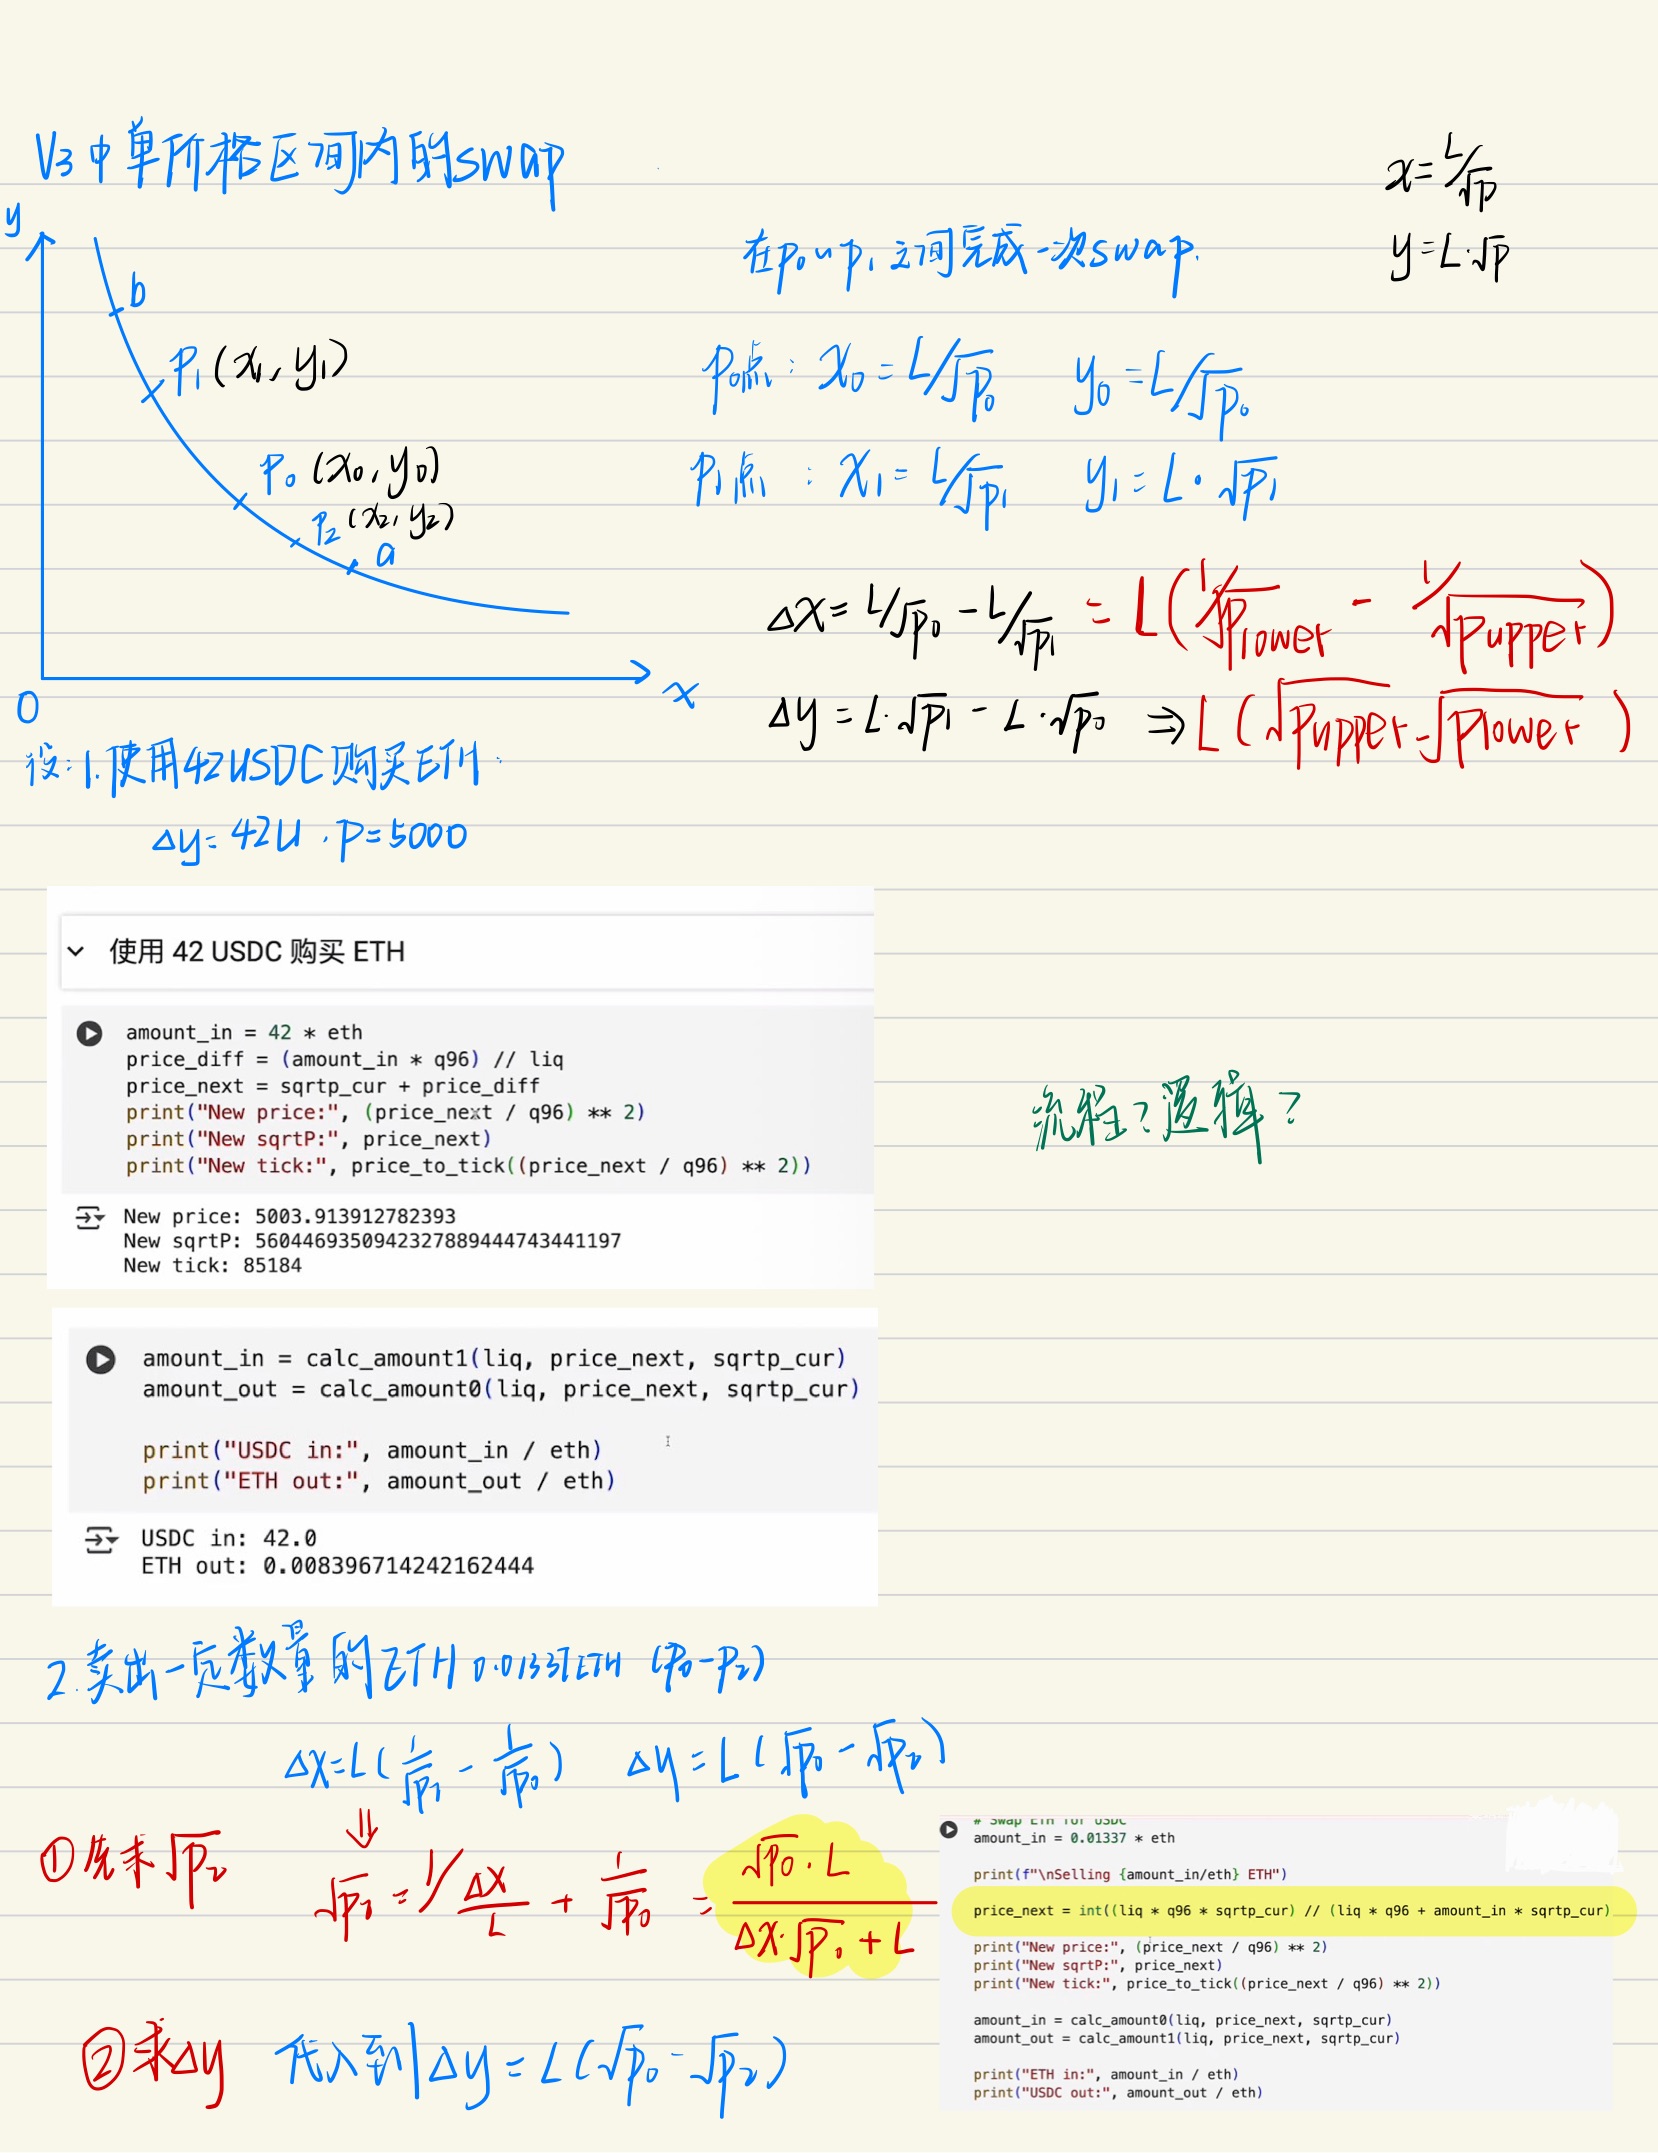 V3中单价格区间内的swap
x=L/√p
y=L·√p
y
b
P₁(x₁, y₁)
P₀(x₀, y₀)
P₂(x₂, y₂)
a
0
x
在p₀~p₁之间完成一次swap.
p₀点: x₀=L/√p₀ y₀=L/√p₀
p₁点: x₁=L/√p₁ y₁=L·√p₁
Δx=L/√p₀-L/√p₁=L(1/√plower - 1/√pupper)
Δy=L·√p₁-L·√p₀ ⇒ L(√pupper-√plower)
设:1.使用42USDC购买ETH.
Δy=42U.P=5000
使用 42 USDC 购买 ETH
amount_in = 42 * eth
price_diff = (amount_in * q96) // liq
price_next = sqrtp_cur + price_diff
print("New price:", (price_next / q96) ** 2)
print("New sqrtP:", price_next)
print("New tick:", price_to_tick((price_next / q96) ** 2))
New price: 5003.913912782393
New sqrtP: 5604469350942327889444743441197
New tick: 85184
流程?逻辑?
amount_in = calc_amount1(liq, price_next, sqrtp_cur)
amount_out = calc_amount0(liq, price_next, sqrtp_cur)
print("USDC in:", amount_in / eth)
print("ETH out:", amount_out / eth)
USDC in: 42.0
ETH out: 0.008396714242162444
2.卖出一定数量的ETH 0.01337ETH (P₀-P₂)
Δx=L(1/√p₂ - 1/√p₀) Δy=L(√p₀-√p₂)
⇓
①先求√p₂
√p₂=1/Δx/L + 1/√p₀ = √p₀·L/Δx·√p₀+L
②求Δy 代入到Δy=L(√p₀-√p₂)
# Swap ETH for USDC
amount_in = 0.01337 * eth
print(f"\nSelling {amount_in/eth} ETH")
price_next = int((liq * q96 * sqrtp_cur) // (liq * q96 + amount_in * sqrtp_cur)
print("New price:", (price_next / q96) ** 2)
print("New sqrtP:", price_next)
print("New tick:", price_to_tick((price_next / q96) ** 2))
amount_in = calc_amount0(liq, price_next, sqrtp_cur)
amount_out = calc_amount1(liq, price_next, sqrtp_cur)
print("ETH in:", amount_in / eth)
print("USDC out:", amount_out / eth)